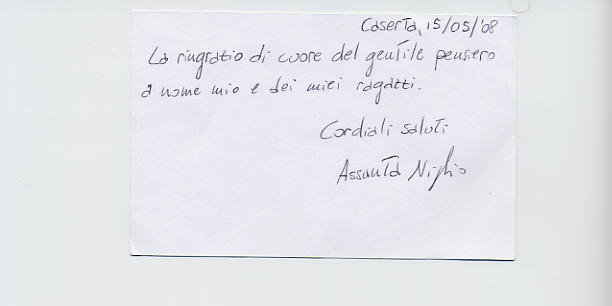 Caserta, 15/05/'08
La ringrazio di cuore del gentile pensiero
a nome mio e dei miei ragazzi.
Cordiali saluti
Assunta Niglio